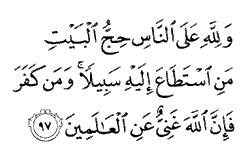 وَلِلَّهِ عَلَى النَّاسِ حِجُّ الْبَيْتِ
مَنِ اسْتَطَاعَ إِلَيْهِ سَبِيلًا ۚ وَمَن كَفَرَ
فَإِنَّ اللَّهَ غَنِيٌّ عَنِ الْعَالَمِينَ ٩٧